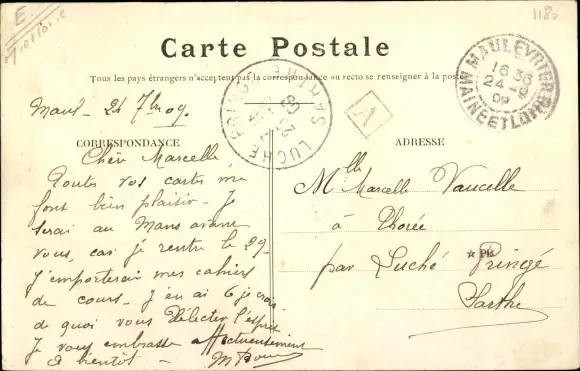 E.
1180
Carte Postale
Tous les pays étrangers n'acceptent pas la correspondance au recto se renseigner à la poste
MAULÉVRIER
16 35
24 - 9
09
MAINE ET LOIRE
LUCHÉ PRINGÉ
SARTHE
09
A
24 7bre 09.
CORRESPONDANCE
ADRESSE
Chère Marcelle
Toutes vos cartes me
font bien plaisir - Je
serai au Mans avant
vous, car je rentre le 29 -
J'emporterai mes cahiers
de cours - J'en ai 6 je crois
de quoi vous délecter l'esprit
Je vous embrasse affectueusement
à bientôt -
Mlle Marcelle Vaucelle
à Thorée
par Luché Pringé
Sarthe